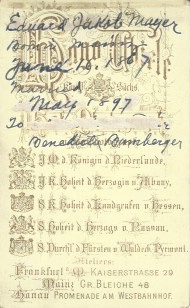 Eduard Jakob Mayer
Born
June 16, 1867
Married
May 1897
To
Benedicta Bamberger
I. M. d. Königin d. Niederlande,
I. K. Hoheit d. Herzogin v. Albany,
S. K. Hoheit d. Landgrafen v. Hessen,
S. Hoheit d. Herzogs v. Nassau,
S. Durchl. d. Fürsten v. Waldeck-Pyrmont.
Ateliers
Frankfurt a/M. KAISERSTRASSE 29
Mainz GR. BLEICHE 48
Hanau PROMENADE AM WESTBAHNHOF.